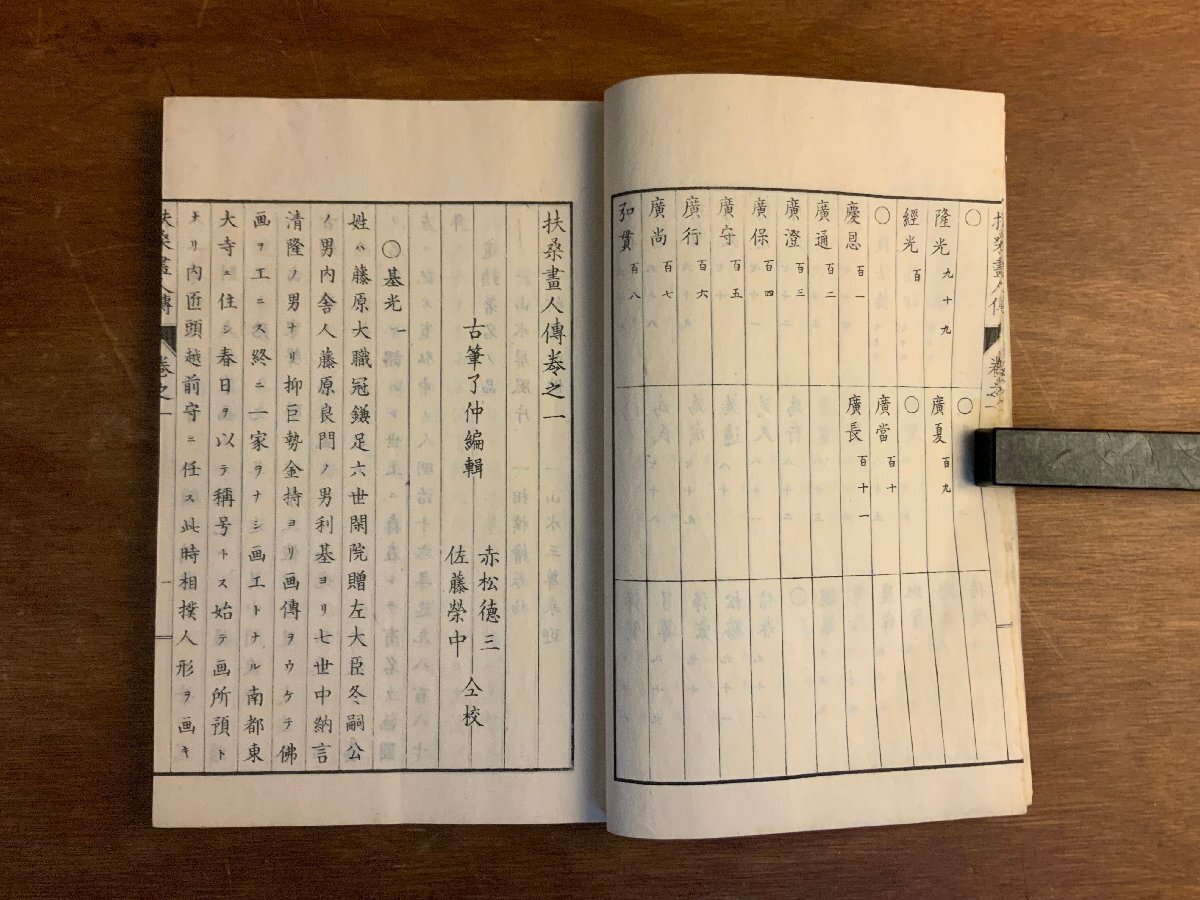 ○
隆光 九十九
經光 百
○
慶恩 百一
廣通 百二
廣澄 百三
廣保 百四
廣守 百五
廣行 百六
廣尚 百七
弘貫 百八
○
廣夏 百九
○
廣當 百十
廣長 百十一
○
扶桑畫人傳卷之一
古筆了仲編輯
赤松德三
佐藤榮中
仝校
○基光 一
姓ハ藤原大職冠鎌足六世閑院贈左大臣冬嗣公
ノ男内舎人藤原良門ノ男利基ヨリ七世中納言
清隆ノ男ナリ抑巨勢金持ヨリ画傳ヲウケテ佛
画ヲエニス終ニ一家ヲナシ画工トナル南都東
大寺ニ住シ春日ヲ以テ稱号トス始テ画所預ト
ナリ内匠頭越前守ニ任ス此時相撲人形ヲ画キ
扶桑畫人傳 卷之一
一